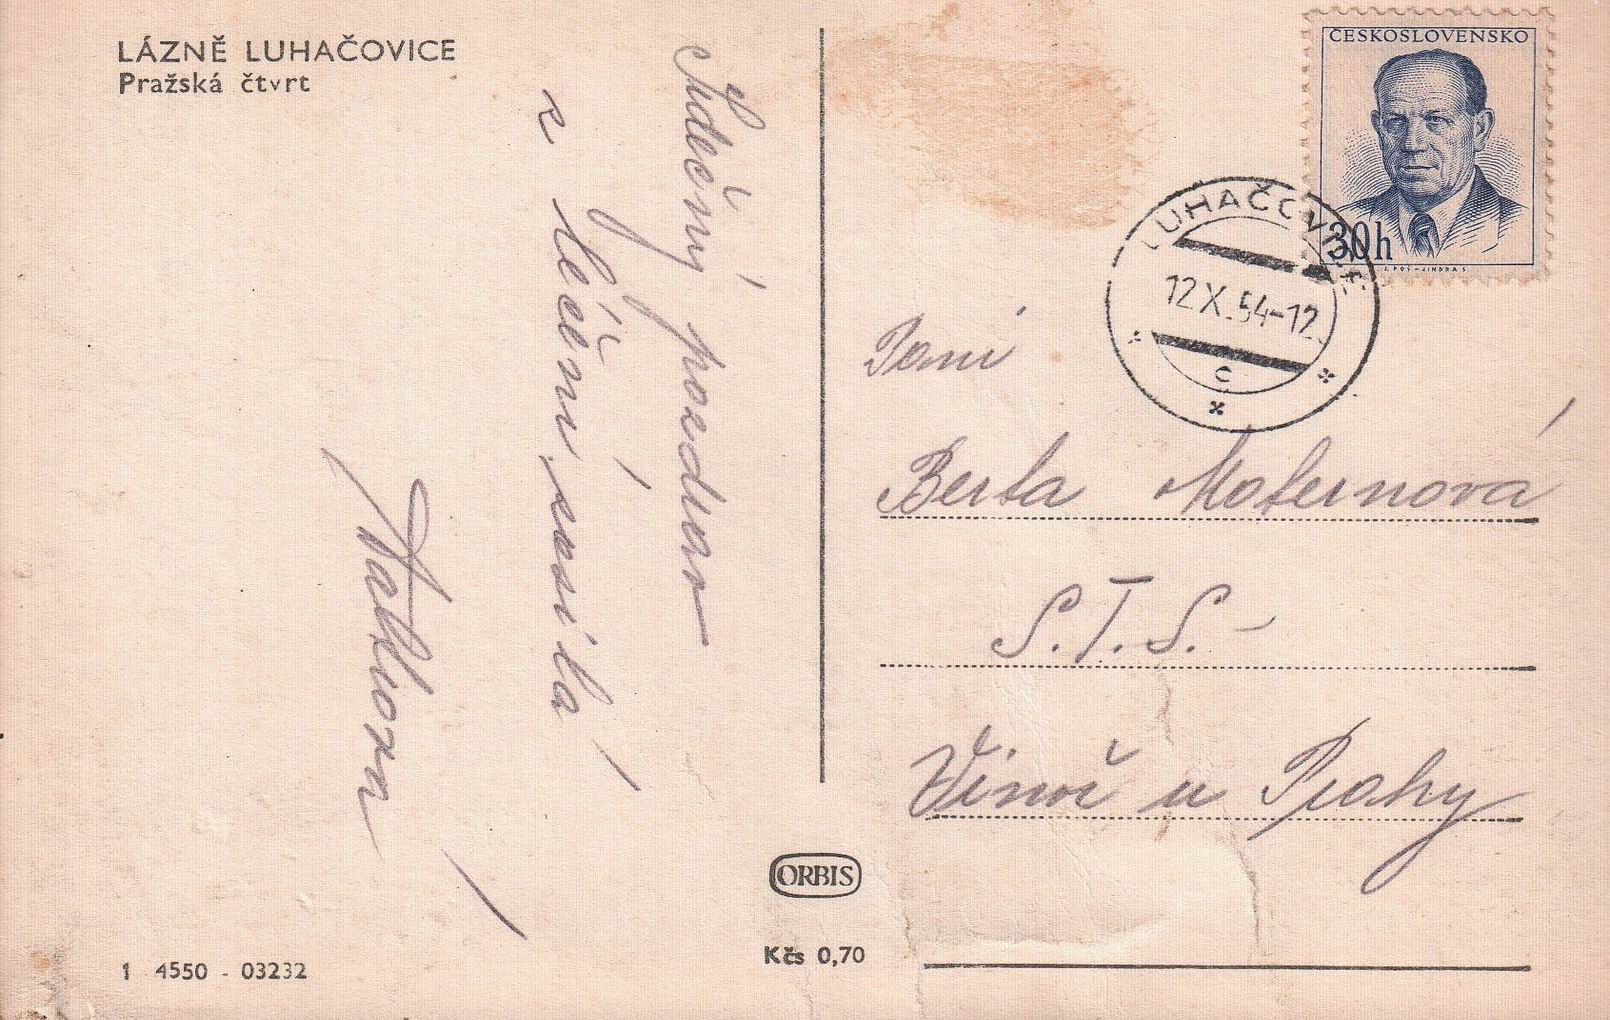 LÁZNĚ LUHAČOVICE
Pražská čtvrt
Srdečný pozdrav
z léčení zasílá
ČESKOSLOVENSKO
30h
J. POŠ - JINDRA S.
LUHAČOVICE
12 X. 54-12
c
Paní
Berta Maternová
S.T.S. -
Vinoř u Prahy
ORBIS
Kčs 0,70
1 4550 - 03232